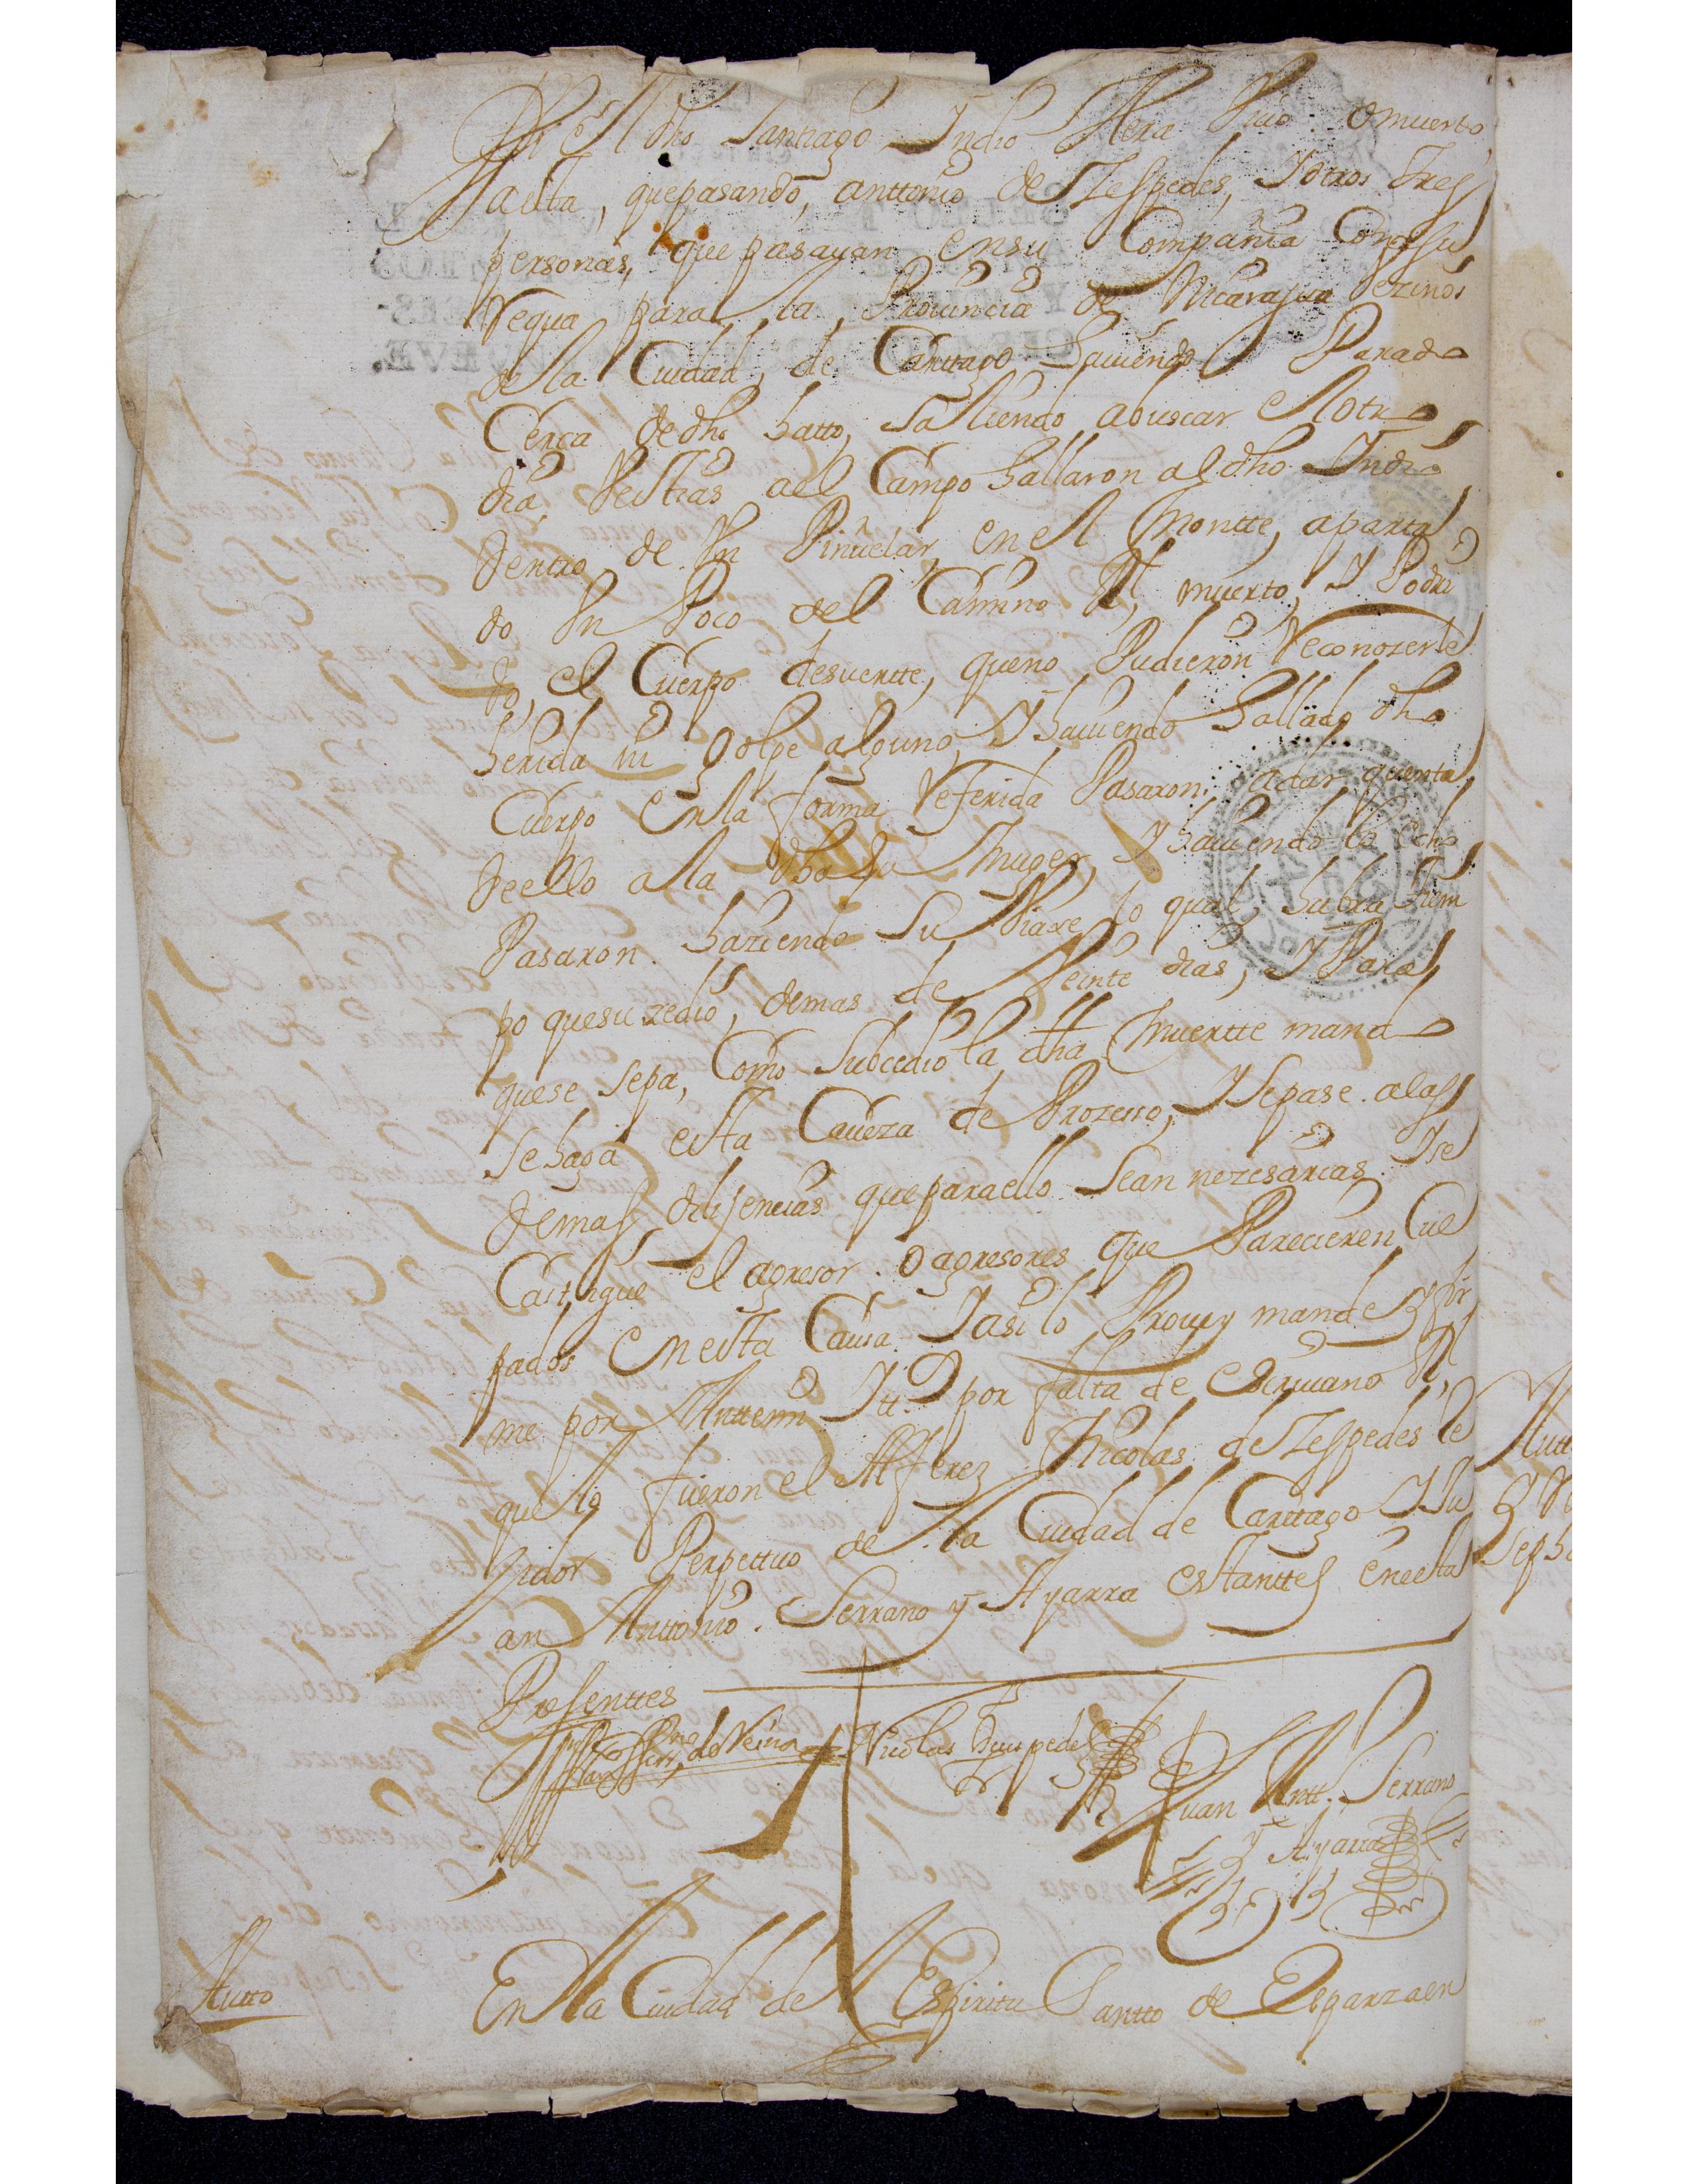 Si el dho Santiago Yndio Hera Viuo o muerto
hasta, que pasando, anttonio de Zespedes, y otros tres
personas, que pasauan en su Compañia Con su
Requa para la Prouincia de Nicaragua Vezinos
de la Ciudad, de Carttago Hauiendo Parado
Cerca de dho hatto, saliendo a buscar el otro
dia Vestias ael Campo hallaron al dho Yndio
dentro de Vn Piñuelar, en el montte, aparta
do Vn Poco del Camino Rl, muerto, y Podri
do, el Cuerpo desuertte, que no Pudieron Reconozerle
herida ni golpe alguno y hauiendo hallado dho
Cuerpo En la forma Referida Pasaron, a dar quenta
de ello a la dha su muger, y hauiendo lo echo
Pasaron haziendo su Viaxe lo qual, habra tiem
po que suzedio, demas de Veinte dias, y Para
que se sepa, Como Subcedio la dha muertte mando
se haga esta Caueza de Prozesso, y se pase a las
demas dilijencias que para ello sean nezesarias y se
Castigue el agresor o agresores que Parecieren Cul
pados En esta Causa Y asi lo Prouey mande y fir
me por Antte mi y tt.º por falta de escriuano Rl,
que lo fueron el Alferez Nicolas de Zespedes Re
jidor Perpettuo de la Ciudad de Carttago y Ju
an Anttonio Serrano y Ayarra estanttes en esta
Presenttes
de Reina Nicolas Juan Antt. Serrano
y Ayarra
Autto En la Ciudad del Espiritu Santto de Esparza en